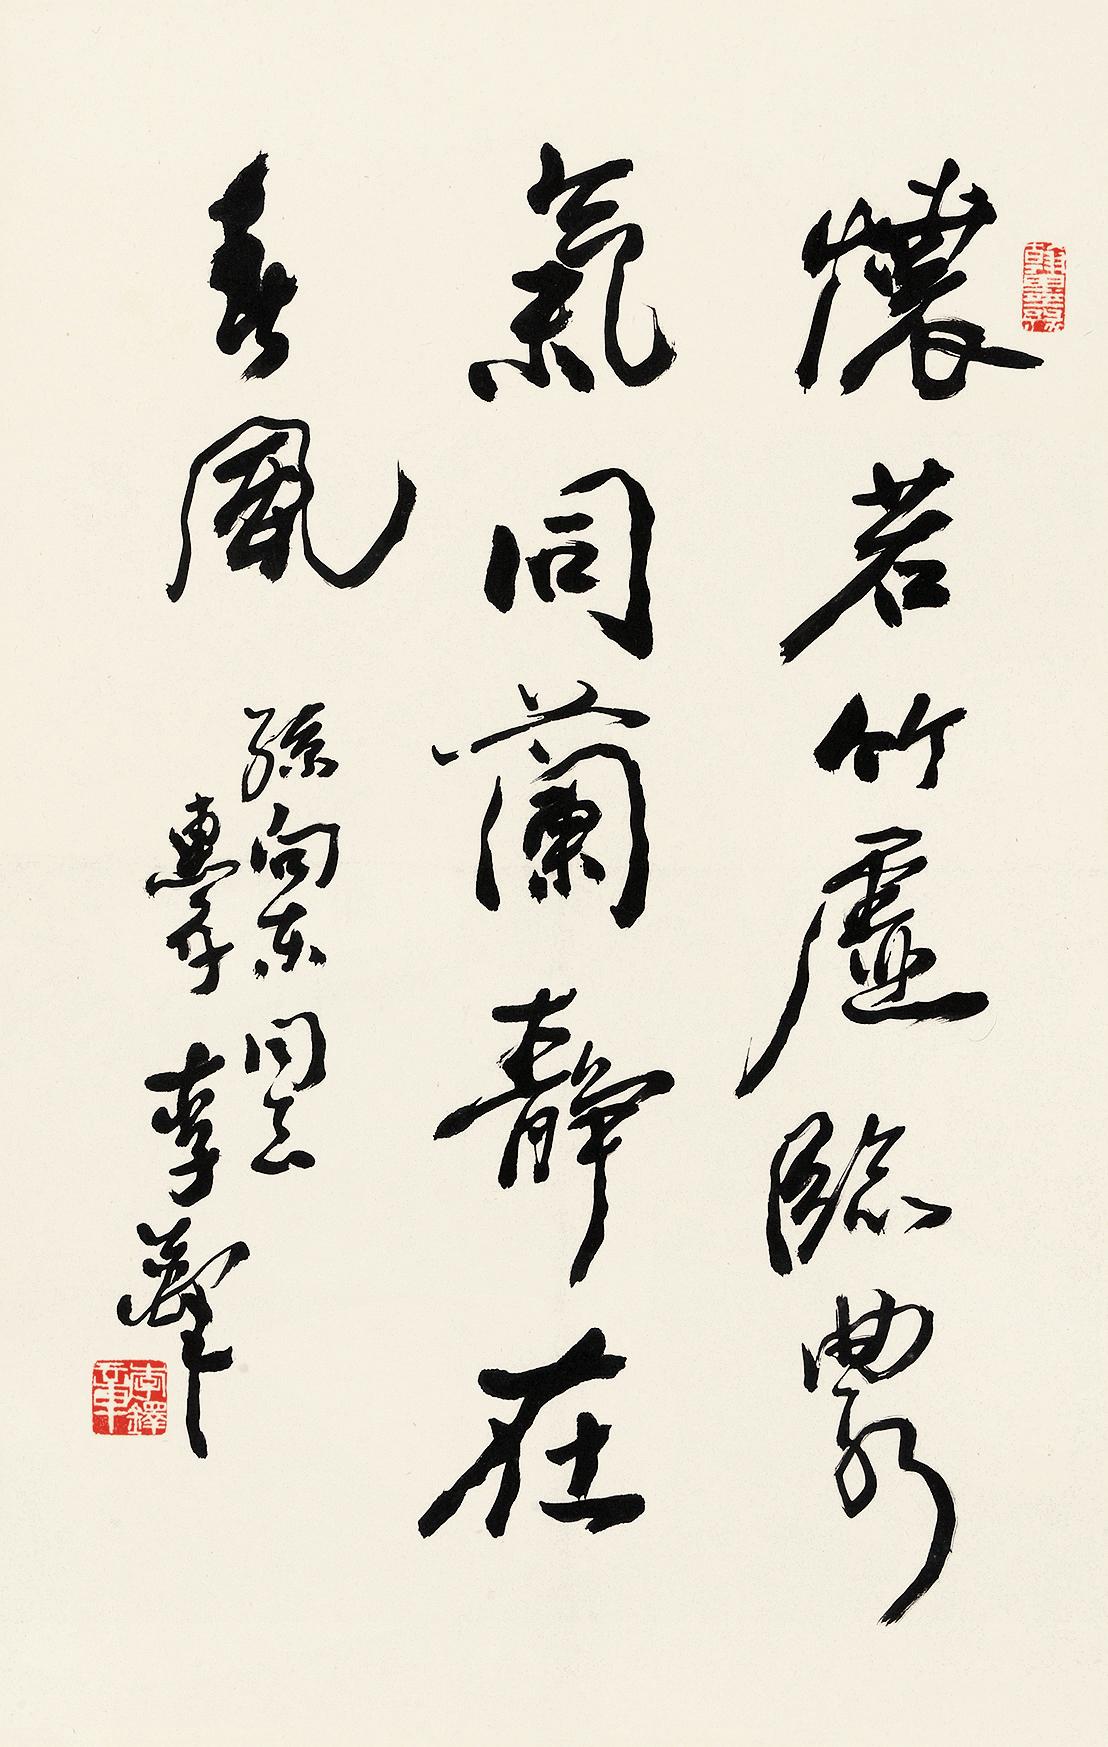 翰墨緣
懷若竹虛臨曲水
氣同蘭靜在
春風
孫向東同志
惠存 李鐸
李鐸